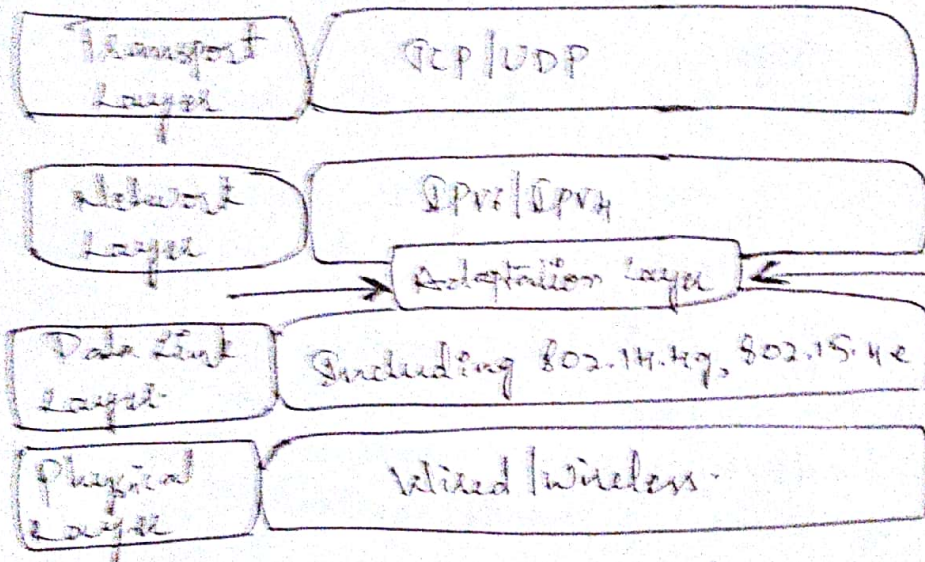 Transport
Layer
TCP/UDP
Network
Layer
IPv6/IPv4
Adaptation Layer
Data Link
Layer
Including 802.14.4g, 802.15.4e
Physical
Layer
Wired/Wireless.